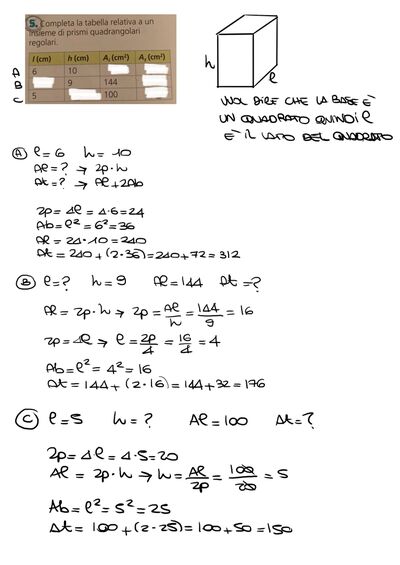 5. Completa la tabella relativa a un
insieme di prismi quadrangolari
regolari.
l (cm) h (cm) Aℓ (cm²) At (cm²)
A 6 10
B 9 144
C 5 100
h
l
VUOL DIRE CHE LA BASE È
UN QUADRATO QUINDI l
È IL LATO DEL QUADRATO
A l=6 h=10
Al=? → 2p·h
At=? → Al+2Ab
2p=4l=4·6=24
Ab=l²=6²=36
Al=24·10=240
At=240+(2·36)=240+72=312
B l=? h=9 Al=144 At=?
Al=2p·h → 2p=Al/h=144/9=16
2p=4l → l=2p/4=16/4=4
Ab=l²=4²=16
At=144+(2·16)=144+32=176
C l=5 h=? Al=100 At=?
2p=4l=4·5=20
Al=2p·h → h=Al/2p=100/20=5
Ab=l²=5²=25
At=100+(2·25)=100+50=150